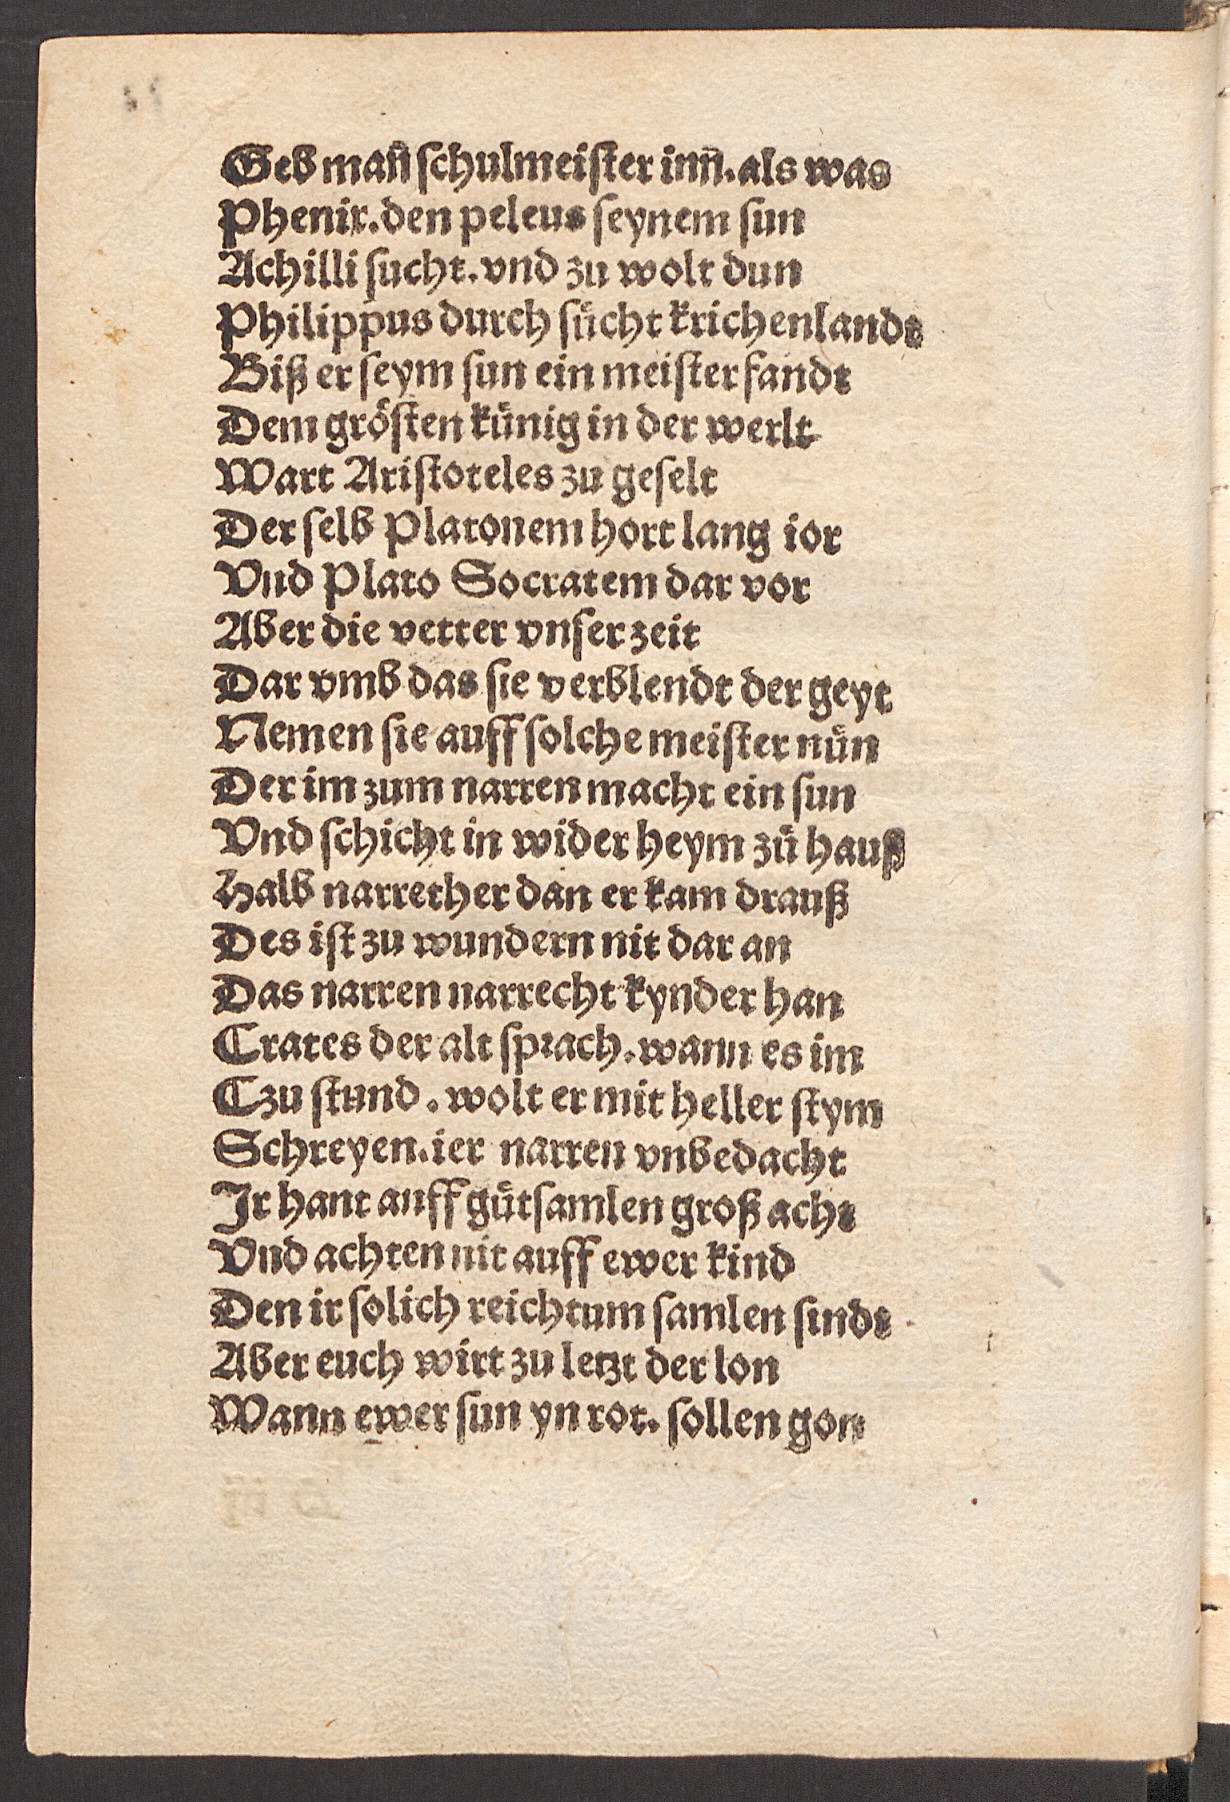 Geb mañ schulmeister inñ. als was
Phenix. den peleus seynem sun
Achilli sucht. vnd zu wolt dun
Philippus durch sůcht krichenlandt
Biß er seym sun ein meister fandt
Dem grösten künig in der werlt
Wart Aristoteles zu geselt
Der selb Platonem hort lang ior
Vnd Plato Socratem dar vor
Aber die vetter vnser zeit
Dar vmb das sie verblendt der geyt
Nemen sie auff solche meister nůn
Der im zum narren macht ein sun
Vnd schicht in wider heym zů hauß
Halb narrether dan er kam drauß
Des ist zu wundern nit dar an
Das narren narrecht kynder han
Crates der alt sprach. wann es im
Czu stund. wolt er mit heller stym
Schreyen. ier narren vnbedacht
Ir hant auff gůtsamlen groß acht
Vnd achten nit auff ewer kind
Den ir solich reichtum samlen sindt
Aber euch wirt zu letzt der lon
Wann ewer sun yn rot. sollen gon